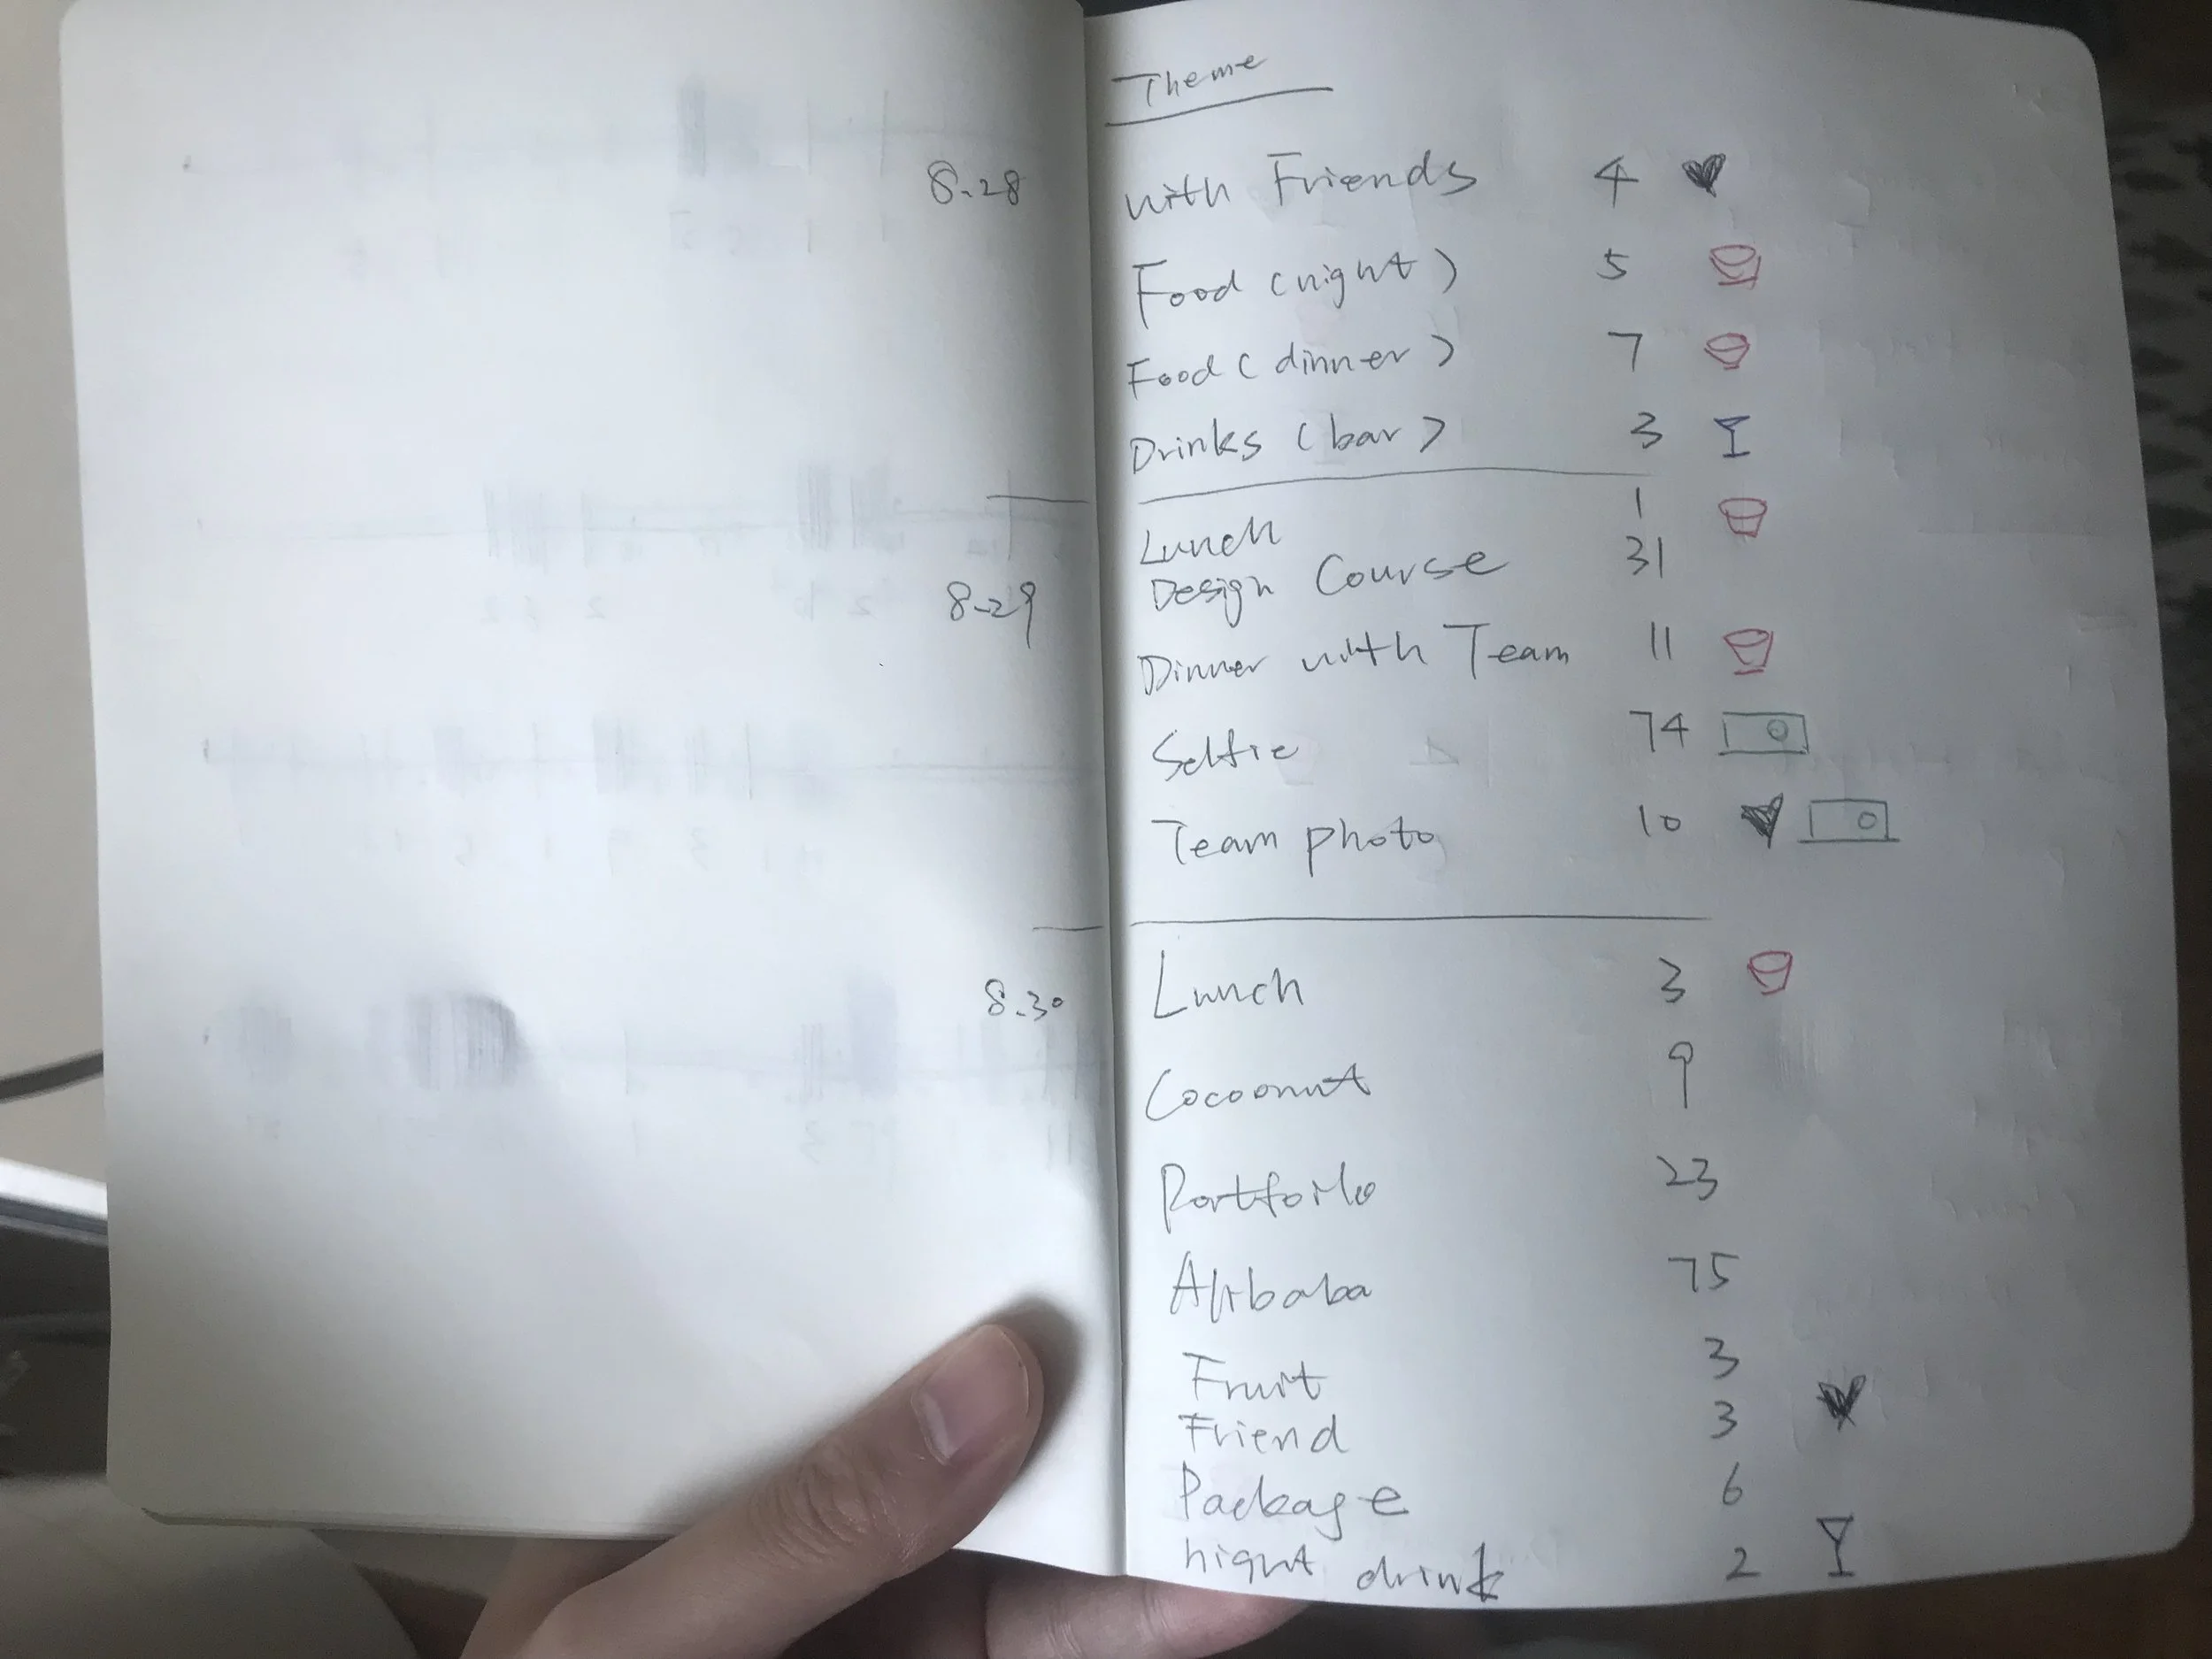 Theme
8-28 with Friends 4
Food (night) 5
Food (dinner) 7
Drinks (bar) 3
Lunch 1
8-29 Design Course 31
Dinner with Team 11
Selfie 74
Team photo 10
8-30 Lunch 3
Cocoonut 9
Portfoilo 23
Alibaba 75
Fruit 3
Friend 3
Package 6
night drink 2